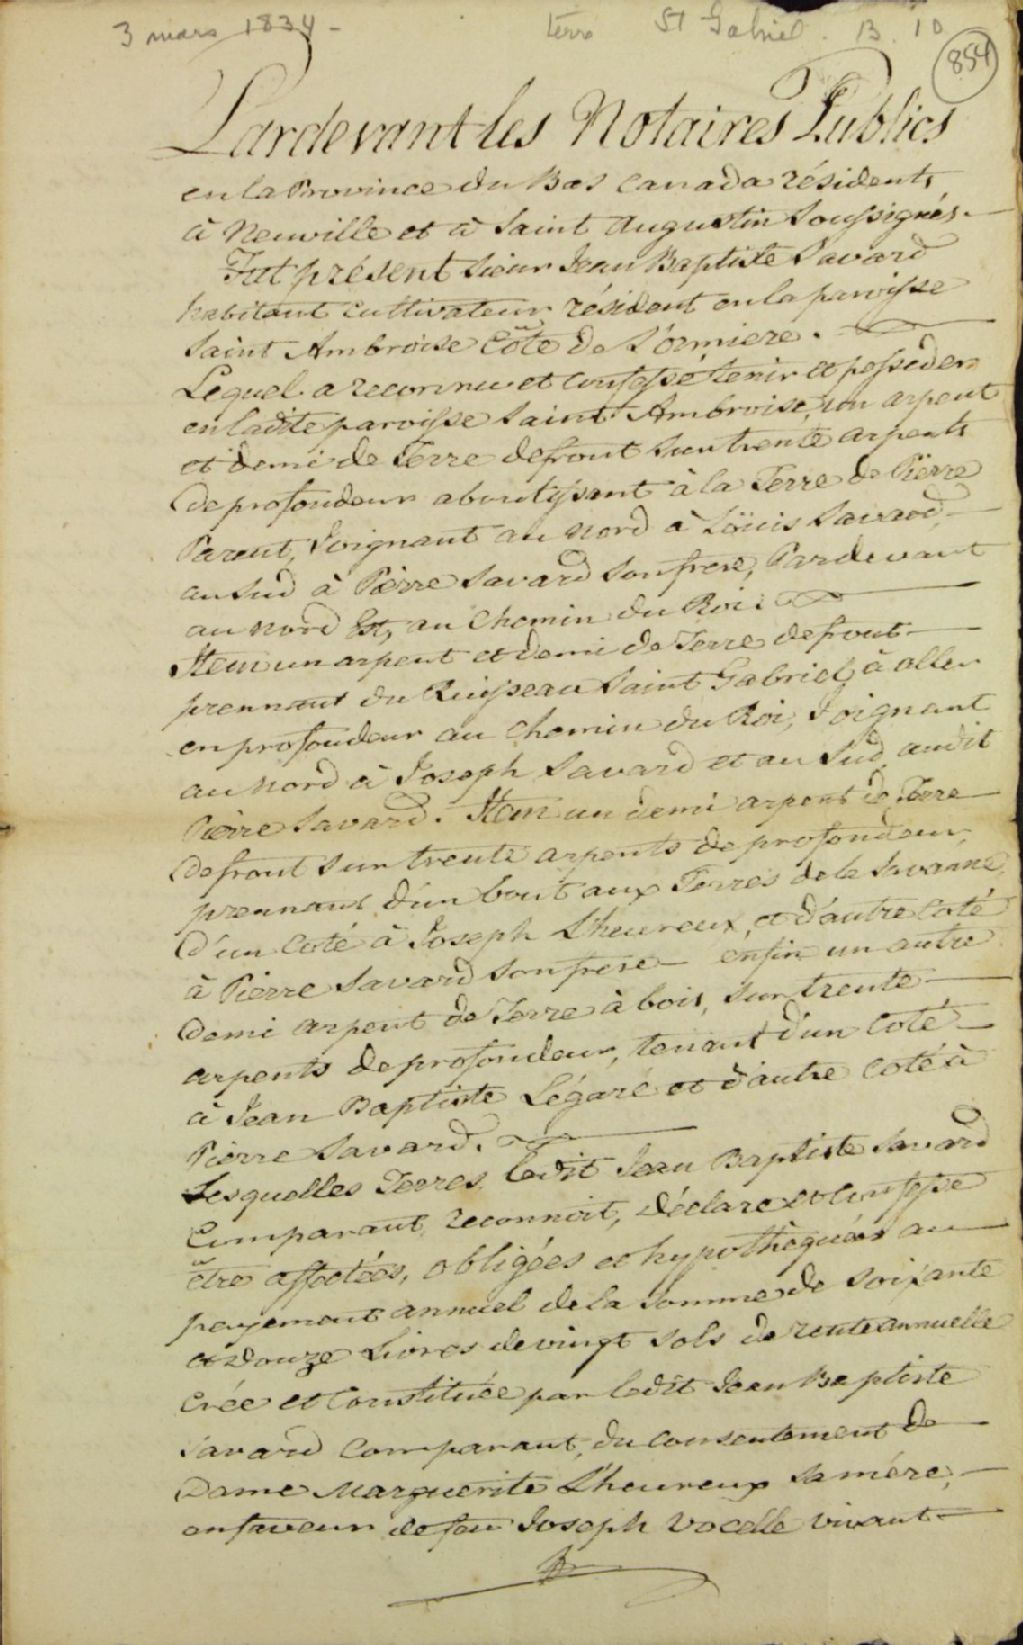 3 mars 1834 - terre St Gabriel. B. 10
854
Pardevant les Notaires Publics
en la Province du Bas Canada résidents
à Neuville et à Saint Augustin Soussignés.
Fut présent Sieur Jean Baptiste Savard
habitant Cultivateur résident en la paroisse
Saint Ambroise Côte de L'ormiere.
Lequel a reconnu et confessé tenir et posseder
en ladite paroisse Saint Ambroise, un arpent
et demi de Terre de front sur trente arpents
de profondeur aboutissant à la Terre de Pierre
Parent, Joignant au nord à Loüis Savard,
au Sud à Pierre Savard Son frere, Pardevant
au nord Est, au Chemin du Roi.
Item un arpent et demi de Terre de front
prennant du Ruisseau Saint Gabriel, à aller
en profondeur au Chemin du Roi, Joignant
au nord à Joseph Savard et au Sud audit
Pierre Savard. Item un demi arpent de Terre
de front sur trente arpents de profondeur,
prennant d'un bout aux Terres de la Savanne,
d'un Coté à Joseph L'heureux, et d'autre Coté
à Pierre Savard Son frere - enfin un autre
demi arpent de Terre à bois, sur trente
arpents de profondeur, tenant d'un Coté
à Jean Baptiste Légaré et d'autre Coté à
Pierre Savard.
Lesquelles Terres, ledit Jean Baptiste Savard
Comparant, reconnoit, déclare et Confesse
être affectées, obligées et hypothèquées au
payement annuel de la somme de Soixante
et douze Livres de vingt Sols de rente annuelle
Créé et Constituée par ledit Jean Baptiste
Savard Comparant, du consentement de
Dame Marguerite L'heureux Sa mére,
en faveur de feu Joseph Vocelle vivant